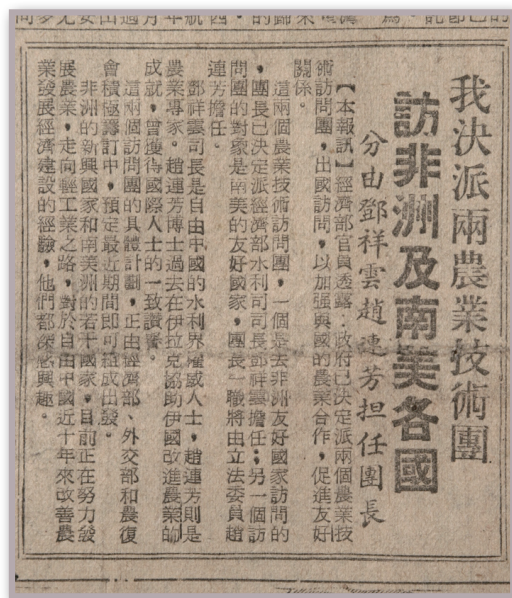 我決派兩農業技術團
訪非洲及南美各國
分由鄧祥雲趙連芳担任團長
【本報訊】經濟部官員透露:政府已決定派兩個農業技
術訪問團,出國訪問,以加强與國的農業合作,促進友好
關係。
這兩個農業技術訪問團,一個是去非洲友好國家訪問的
,團長已決定派經濟部水利司司長鄧祥雲擔任;另一個訪
問團的對象是南美的友好國家,團長一職將由立法委員趙
連芳擔任。
鄧祥雲司長是自由中國的水利界權威人士,趙連芳則是
農業專家。趙連芳博士過去在伊拉克協助伊國改進農業的
成就,曾獲得國際人士的一致讚譽。
這兩個訪問團的具體計劃,正由經濟部、外交部和農復
會積極籌訂中,預定最近期間即可組成出發。
非洲的新興國家和南美洲的若干國家,目前正在努力發
展農業,走向輕工業之路,對於自由中國近十年來改善農
業發展經濟建設的經驗,他們都深感興趣。